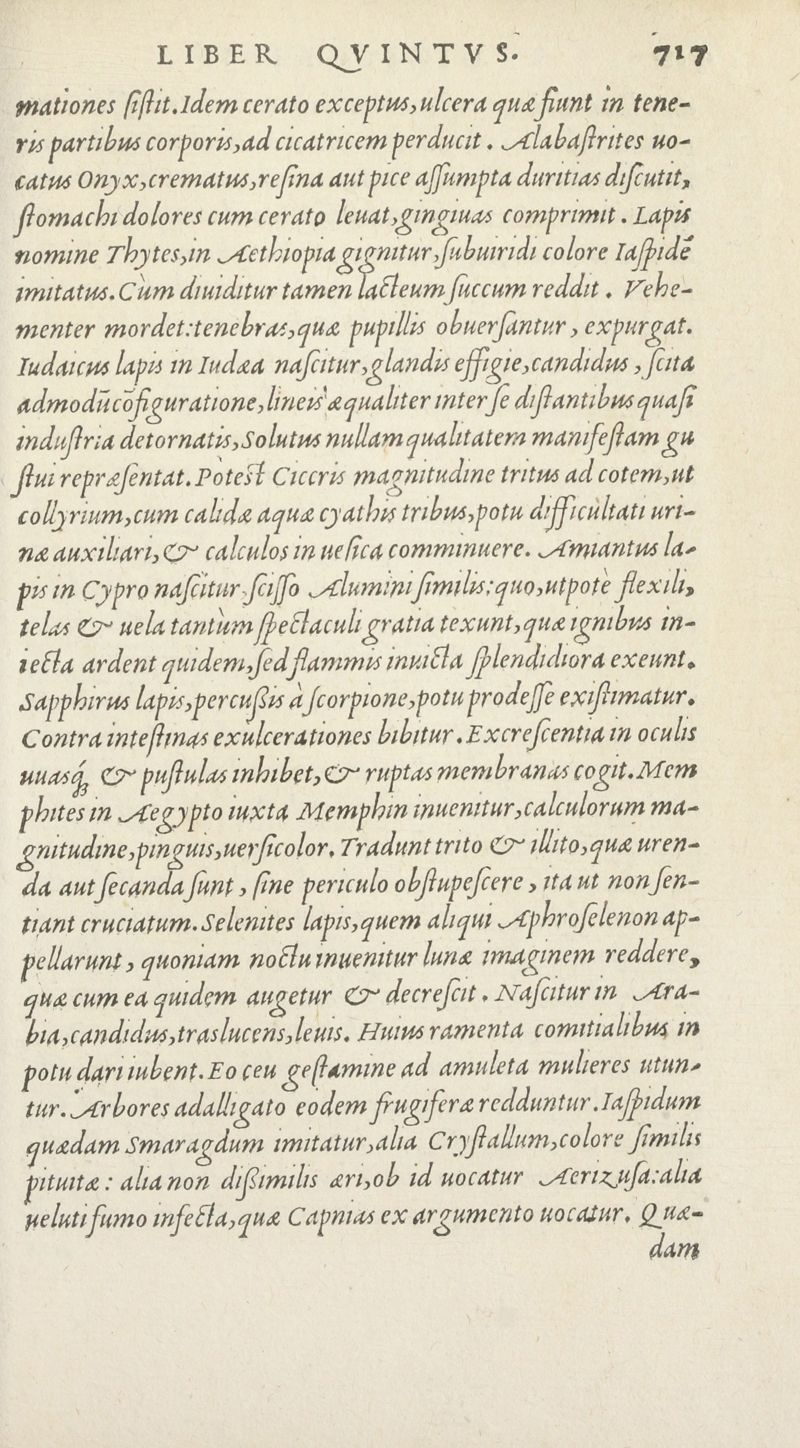 LIBER QVINTVS. 717
mationes ſiſtit. Idem cerato exceptus, ulcera quæ fiunt in tene-
ris partibus corporis, ad cicatricem perducit. Alabaſtrites uo-
catus Onyx, crematus, reſina aut pice aſſumpta duritias diſcutit,
ſtomachi dolores cum cerato leuat, gingiuas comprimit. Lapis
nomine Thytes, in Aethiopia gignitur, ſubuiridi colore Iaſpidē
imitatus. Cùm diuiditur tamen lacteum ſuccum reddit. Vehe-
menter mordet: tenebras, quæ pupillis obuerſantur, expurgat.
Iudaicus lapis in Iudæa naſcitur, glandis effigie, candidus, ſcita
admodū cōfiguratione, lineis æqualiter inter ſe diſtantibus quaſi
induſtria detornatis, Solutus nullam qualitatem manifeſtam gu
ſtui repræſentat. Poteſt Ciceris magnitudine tritus ad cotem, ut
collyrium, cum calidæ aquæ cyathis tribus, potu difficultati uri-
næ auxiliari, & calculos in ueſica comminuere. Amiantus la-
pis in Cypro naſcitur, ſciſſo Alumini ſimilis: quo, utpote flexili,
telas & uela tantùm ſpectaculi gratia texunt, quæ ignibus in-
iecta ardent quidem, ſed flammis inuicta ſplendidiora exeunt.
Sapphirus lapis, percuſsis à ſcorpione, potu prodeſſe exiſtimatur.
Contra inteſtinas exulcerationes bibitur. Excreſcentia in oculis
uuasq́; & puſtulas inhibet, & ruptas membranas cogit. Mem
phites in Aegypto iuxta Memphin inuenitur, calculorum ma-
gnitudine, pinguis, uerſicolor. Tradunt trito & illito, quæ uren-
da aut ſecanda ſunt, ſine periculo obſtupeſcere, ita ut non ſen-
tiant cruciatum. Selenites lapis, quem aliqui Aphroſelenon ap-
pellarunt, quoniam noctu inuenitur lunæ imaginem reddere,
quæ cum ea quidem augetur & decreſcit. Naſcitur in Ara-
bia, candidus, traslucens, leuis. Huius ramenta comitialibus in
potu dari iubent. Eo ceu geſtamine ad amuleta mulieres utun-
tur. Arbores adalligato eodem frugiferæ redduntur. Iaſpidum
quædam Smaragdum imitatur, alia Cryſtallum, colore ſimilis
pituitæ: alia non diſsimilis æri, ob id uocatur Aerizuſa: alia
ueluti fumo infecta, quæ Capnias ex argumento uocatur. Quæ-
dam